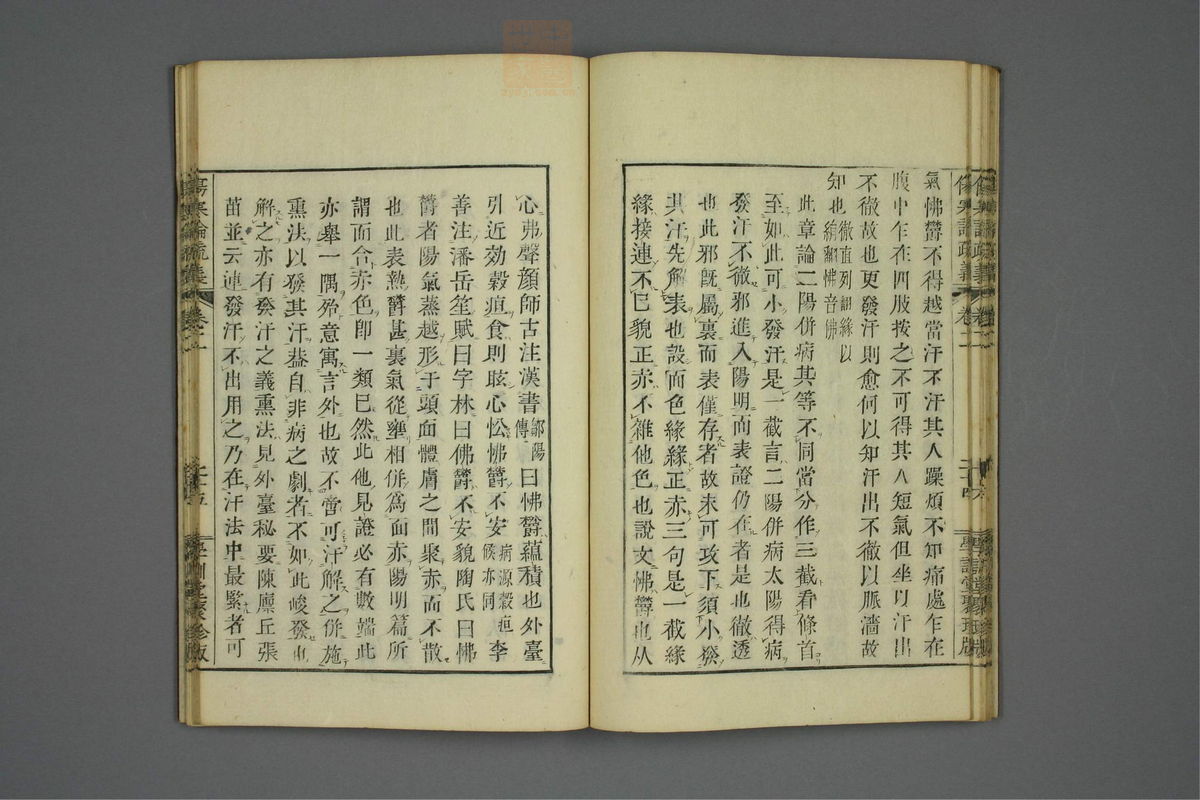 氣怫鬱不得越當汗不汗其人躁煩不知痛處乍在
腹中乍在四肢按之不可得其人短氣但坐以汗出
不徹故也更發汗則愈何以知汗出不徹以脈濇故
知也徹直列翻緣以
絹翻怫音佛
此章論二陽併病其等不同當分作三截看條首
至如此可小發汗是一截言二陽併病太陽得病
發汗不徹邪進入陽明而表證仍在者是也徹透
也此邪旣屬裏而表僅存者故未可攻下須小發
其汗先解表也設面色緣緣正赤三句是一截緣
緣接連不已貌正赤不雜他色也說文怫鬱也从
心弗聲顏師古注漢書鄒陽
傳曰怫鬱蘊積也外臺
引近効穀疸食則眩心忪怫鬱不安病源穀疸
候亦同李
善注潘岳笙賦曰字林曰佛鬱不安貌陶氏曰怫
鬱者陽氣蒸越形于頭面體膚之間聚赤而不散
也此表熱鬱甚裏氣從壅相併爲面赤陽明篇所
謂面合赤色卽一類已然此他見證必有數端此
亦舉一隅殆意寓言外也故不啻可汗解之併施
熏法以發其汗葢自非病之劇者不如此峻發也
解之亦有發汗之義熏法見外臺秘要陳廩丘張
苗並云連發汗不出用之乃在汗法中最緊者可
傷寒論疏義
卷二